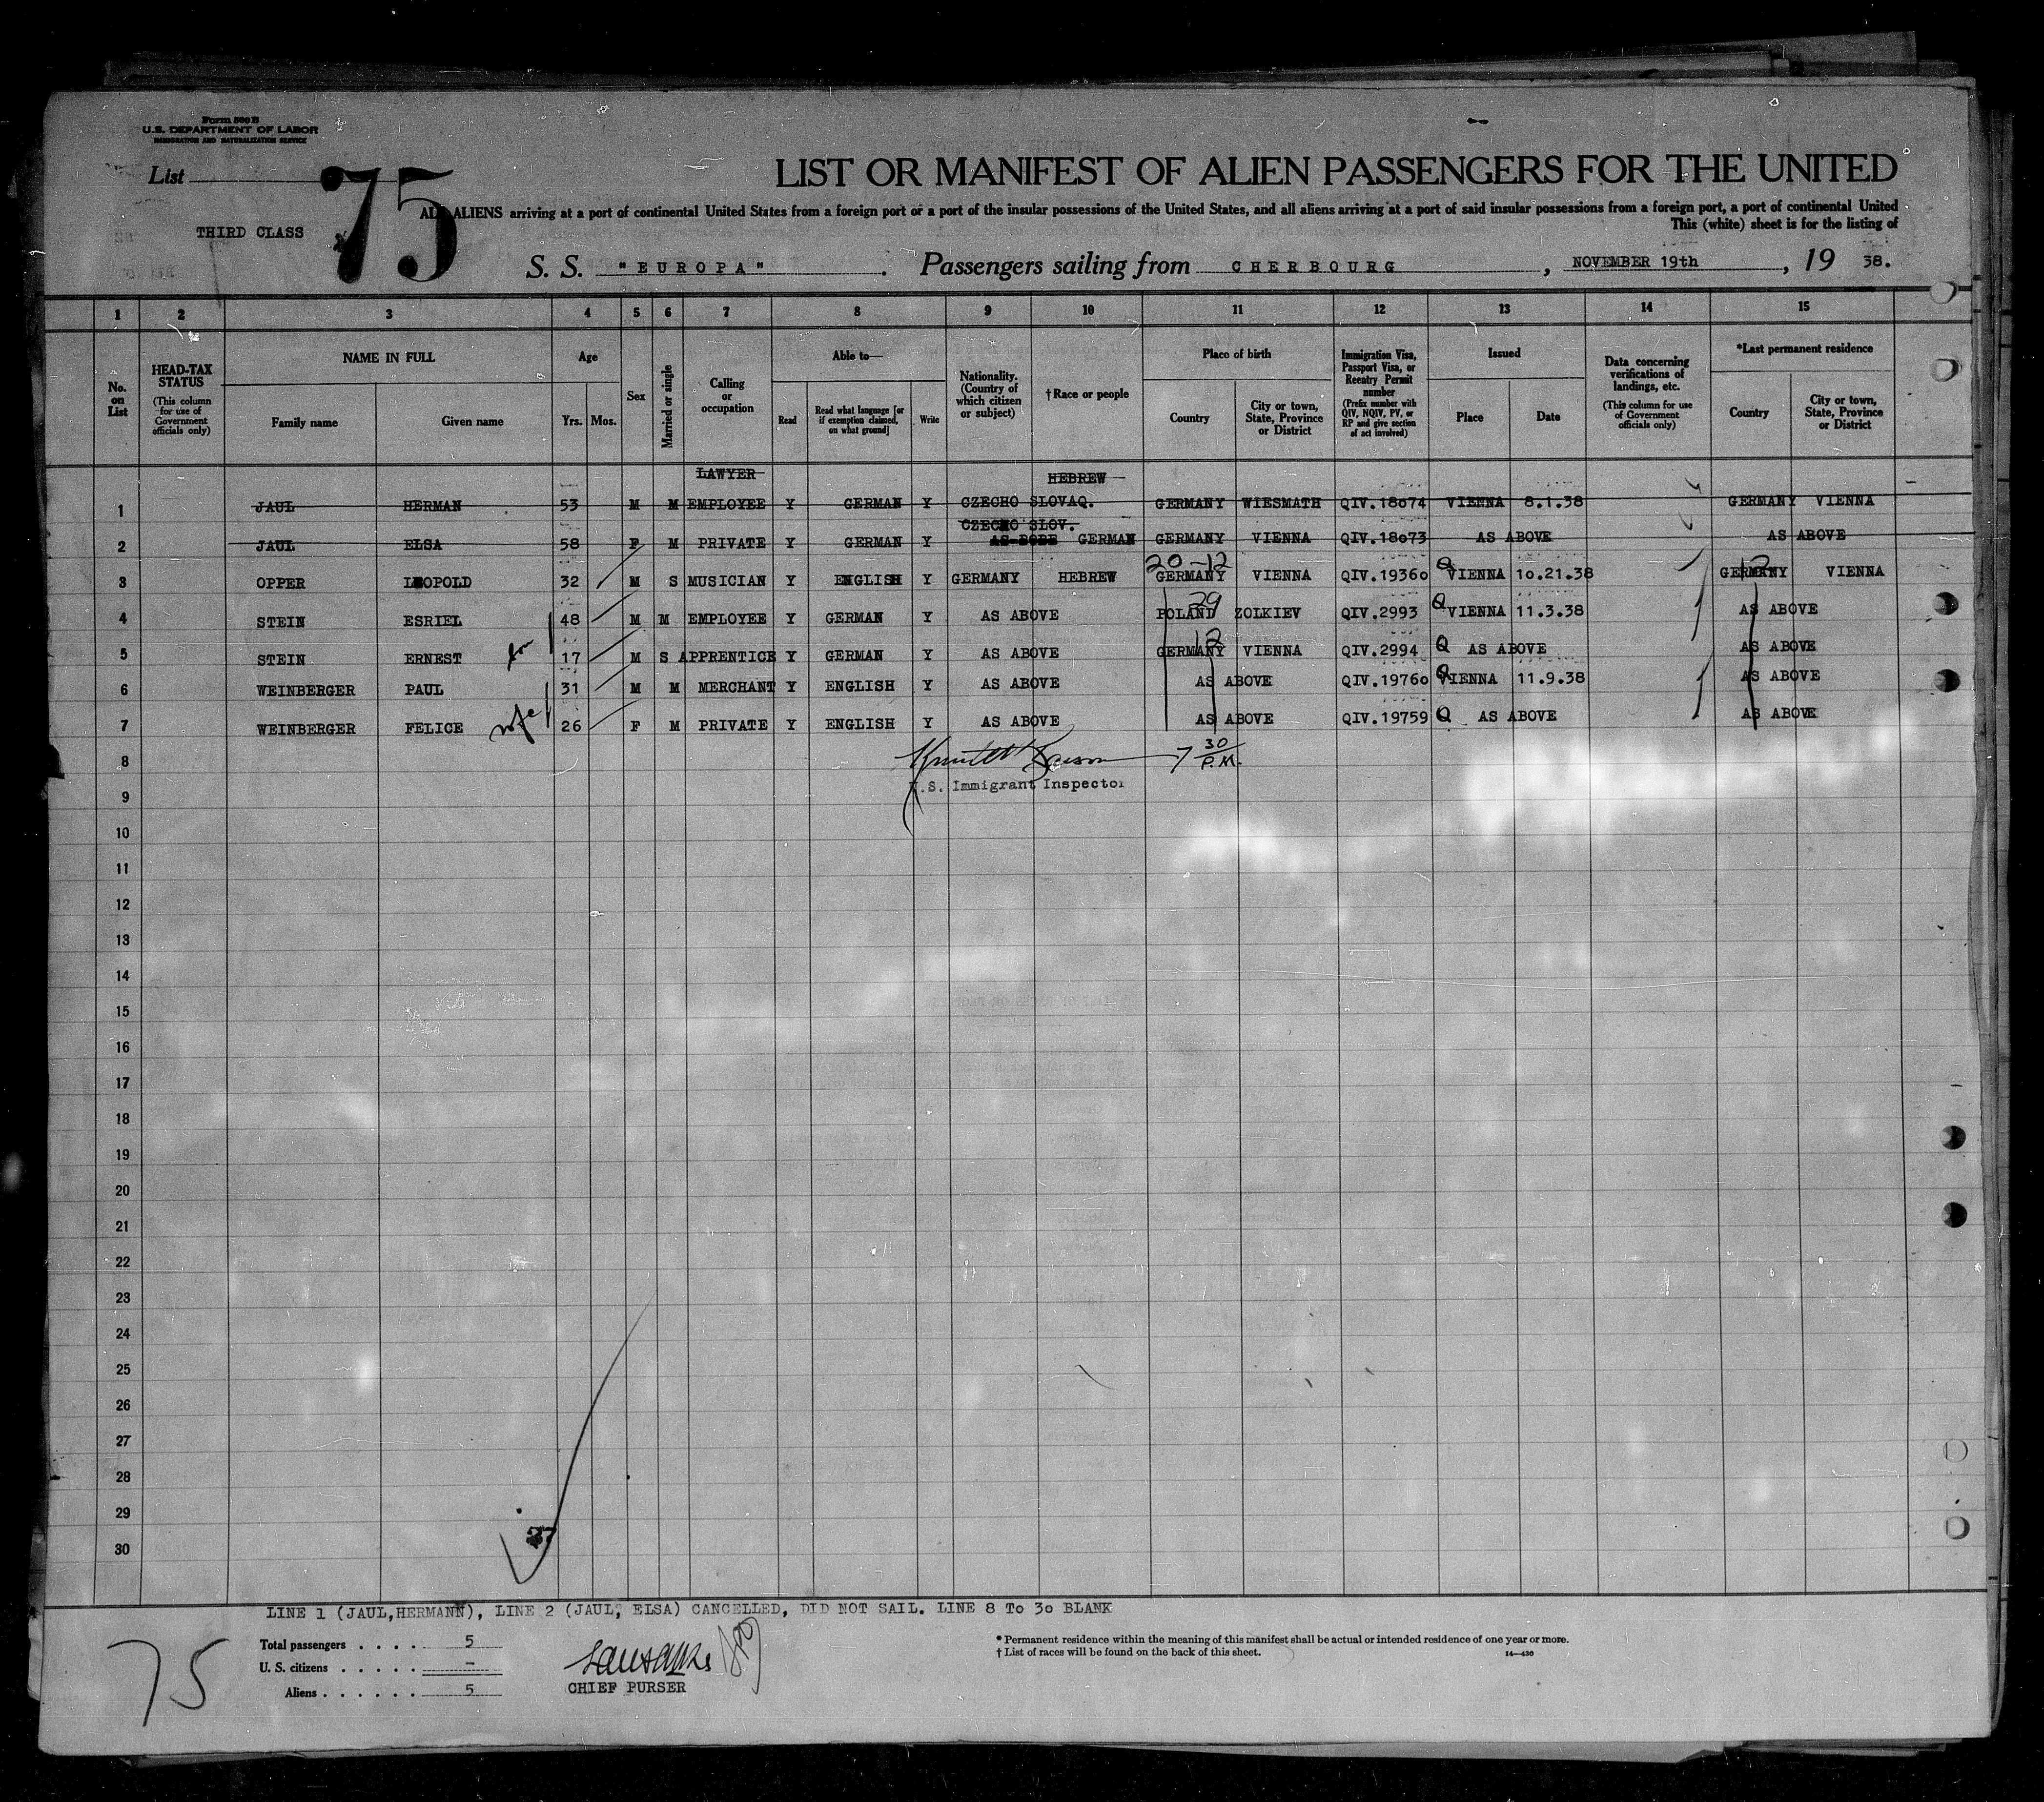 Form 500 B
U.S. DEPARTMENT OF LABOR
IMMIGRATION AND NATURALIZATION SERVICE
List 75
LIST OR MANIFEST OF ALIEN PASSENGERS FOR THE UNITED
ALL ALIENS arriving at a port of continental United States from a foreign port or a port of the insular possessions of the United States, and all aliens arriving at a port of said insular possessions from a foreign port, a port of continental United
THIRD CLASS This (white) sheet is for the listing of
S. S. "EUROPA". Passengers sailing from CHERBOURG, NOVEMBER 19th, 19 38.
1 2 3 4 5 6 7 8 9 10 11 12 13 14 15
No. on List
HEAD-TAX STATUS (This column for use of Government officials only)
NAME IN FULL
Family name Given name
Age
Yrs. Mos.
Sex
Married or single
Calling or occupation
Able to—
Read Read what language [or if exemption claimed, on what ground] Write
Nationality. (Country of which citizen or subject)
†Race or people
Place of birth
Country City or town, State, Province or District
Immigration Visa, Passport Visa, or Reentry Permit number (Prefix number with QIV, NQIV, PV, or RP and give section of act involved)
Issued
Place Date
Data concerning verifications of landings, etc. (This column for use of Government officials only)
*Last permanent residence
Country City or town, State, Province or District
LAWYER HEBREW
1 JAUL HERMAN 53 M M EMPLOYEE Y GERMAN Y CZECHO SLOVAQ. GERMANY WIESMATH QIV.18074 VIENNA 8.1.38 GERMANY VIENNA
CZECHO SLOV.
2 JAUL ELSA 58 F M PRIVATE Y GERMAN Y GERMAN GERMANY VIENNA QIV.18073 AS ABOVE AS ABOVE
20-12 12
3 OPPER LEOPOLD 32 M S MUSICIAN Y ENGLISH Y GERMANY HEBREW GERMANY VIENNA QIV.19360 Q VIENNA 10.21.38 GERMANY VIENNA
29
4 STEIN ESRIEL 48 M M EMPLOYEE Y GERMAN Y AS ABOVE POLAND ZOLKIEV QIV.2993 Q VIENNA 11.3.38 AS ABOVE
12
5 STEIN ERNEST 17 M S APPRENTICE Y GERMAN Y AS ABOVE GERMANY VIENNA QIV.2994 Q AS ABOVE AS ABOVE
6 WEINBERGER PAUL 31 M M MERCHANT Y ENGLISH Y AS ABOVE AS ABOVE QIV.19760 Q VIENNA 11.9.38 AS ABOVE
7 WEINBERGER FELICE wife 26 F M PRIVATE Y ENGLISH Y AS ABOVE AS ABOVE QIV.19759 Q AS ABOVE AS ABOVE
8 7 30 P.M.
9 U.S. Immigrant Inspector
10
11
12
13
14
15
16
17
18
19
20
21
22
23
24
25
26
27
28
29
30
LINE 1 (JAUL,HERMANN), LINE 2 (JAUL, ELSA) CANCELLED, DID NOT SAIL. LINE 8 TO 30 BLANK
75
Total passengers . . . . 5
U. S. citizens . . . . . –
Aliens . . . . . . 5
CHIEF PURSER
* Permanent residence within the meaning of this manifest shall be actual or intended residence of one year or more.
† List of races will be found on the back of this sheet.
14—430